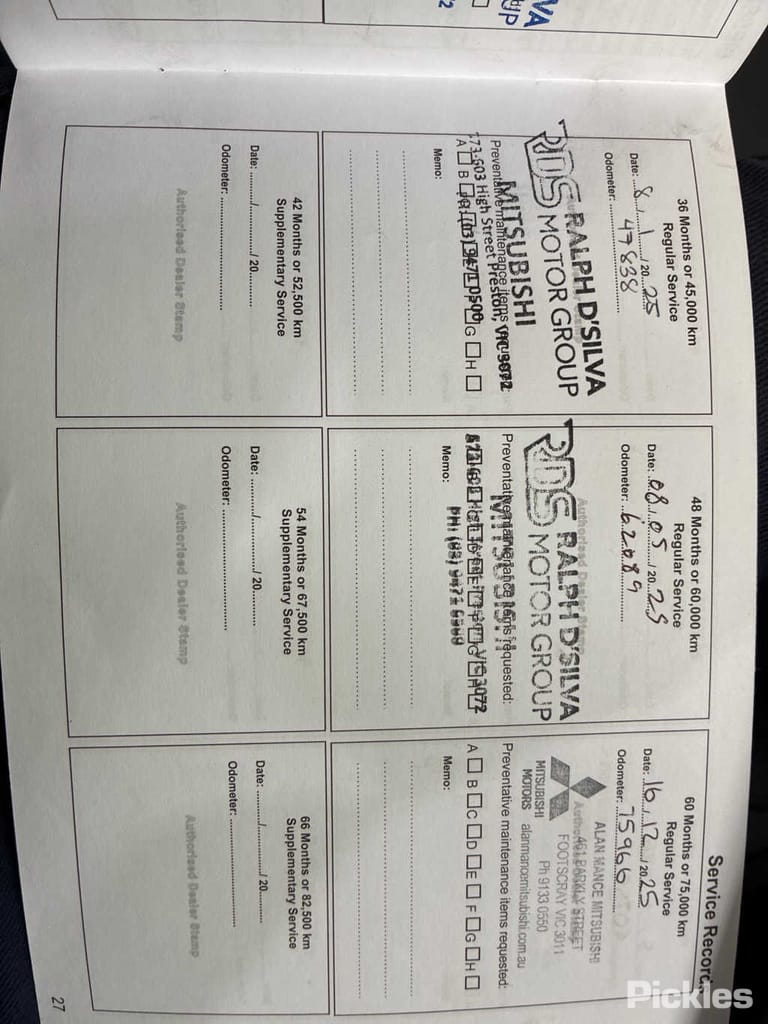 Service Record
36 Months or 45,000 km
Regular Service
Date: 8/1/2025
Odometer: 47838
RDS RALPH D'SILVA
MOTOR GROUP
MITSUBISHI
High Street Preston, VIC 3072
Preventative maintenance items requested:
A B G H
Memo:
42 Months or 52,500 km
Supplementary Service
Date: ........./........./ 20.........
Odometer:
Authorised Dealer Stamp
48 Months or 60,000 km
Regular Service
Date: 08/05/2025
Odometer: 62089
RDS RALPH D'SILVA
MOTOR GROUP
MITSUBISHI
Preventative maintenance items requested:
VIC 3072
Memo:
54 Months or 67,500 km
Supplementary Service
Date: ........./........./ 20.........
Odometer:
Authorised Dealer Stamp
60 Months or 75,000 km
Regular Service
Date: 16/12/2025
Odometer: 75966
ALAN MANCE MITSUBISHI
BARKLY STREET
FOOTSCRAY VIC 3011
Ph 9133 0550
MITSUBISHI
MOTORS
alanmancemitsubishi.com.au
Preventative maintenance items requested:
A B C D E F G H
Memo:
66 Months or 82,500 km
Supplementary Service
Date: ........./........./ 20.........
Odometer:
Authorised Dealer Stamp
27
Pickles